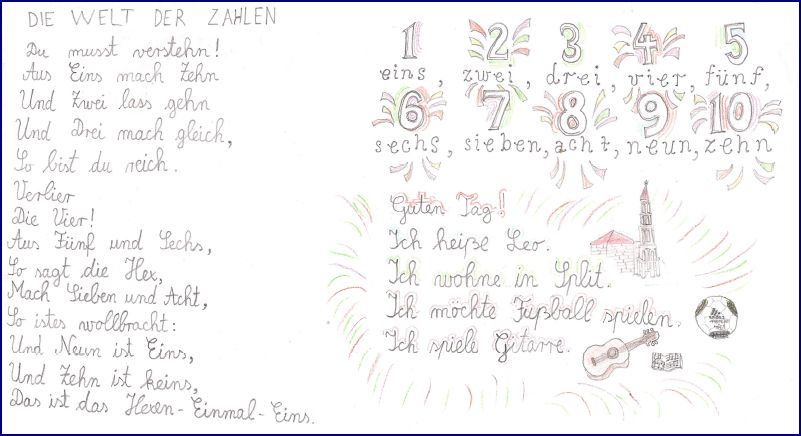 DIE WELT DER ZAHLEN
Du musst verstehn!
Aus Eins mach Zehn
Und Zwei lass gehn
Und Drei mach gleich,
So bist du reich.
Verlier
Die Vier!
Aus Fünf und Sechs,
So sagt die Hex,
Mach Sieben und Acht,
So istes wollbracht:
Und Neun ist Eins,
Und Zehn ist keins,
Das ist das Hexen-Einmal-Eins.
1 2 3 4 5
eins, zwei, drei, vier, fünf,
6 7 8 9 10
sechs, sieben, acht, neun, zehn
Guten Tag!
Ich heiße Leo.
Ich wohne in Split.
Ich möchte Fußball spielen.
Ich spiele Gitarre.